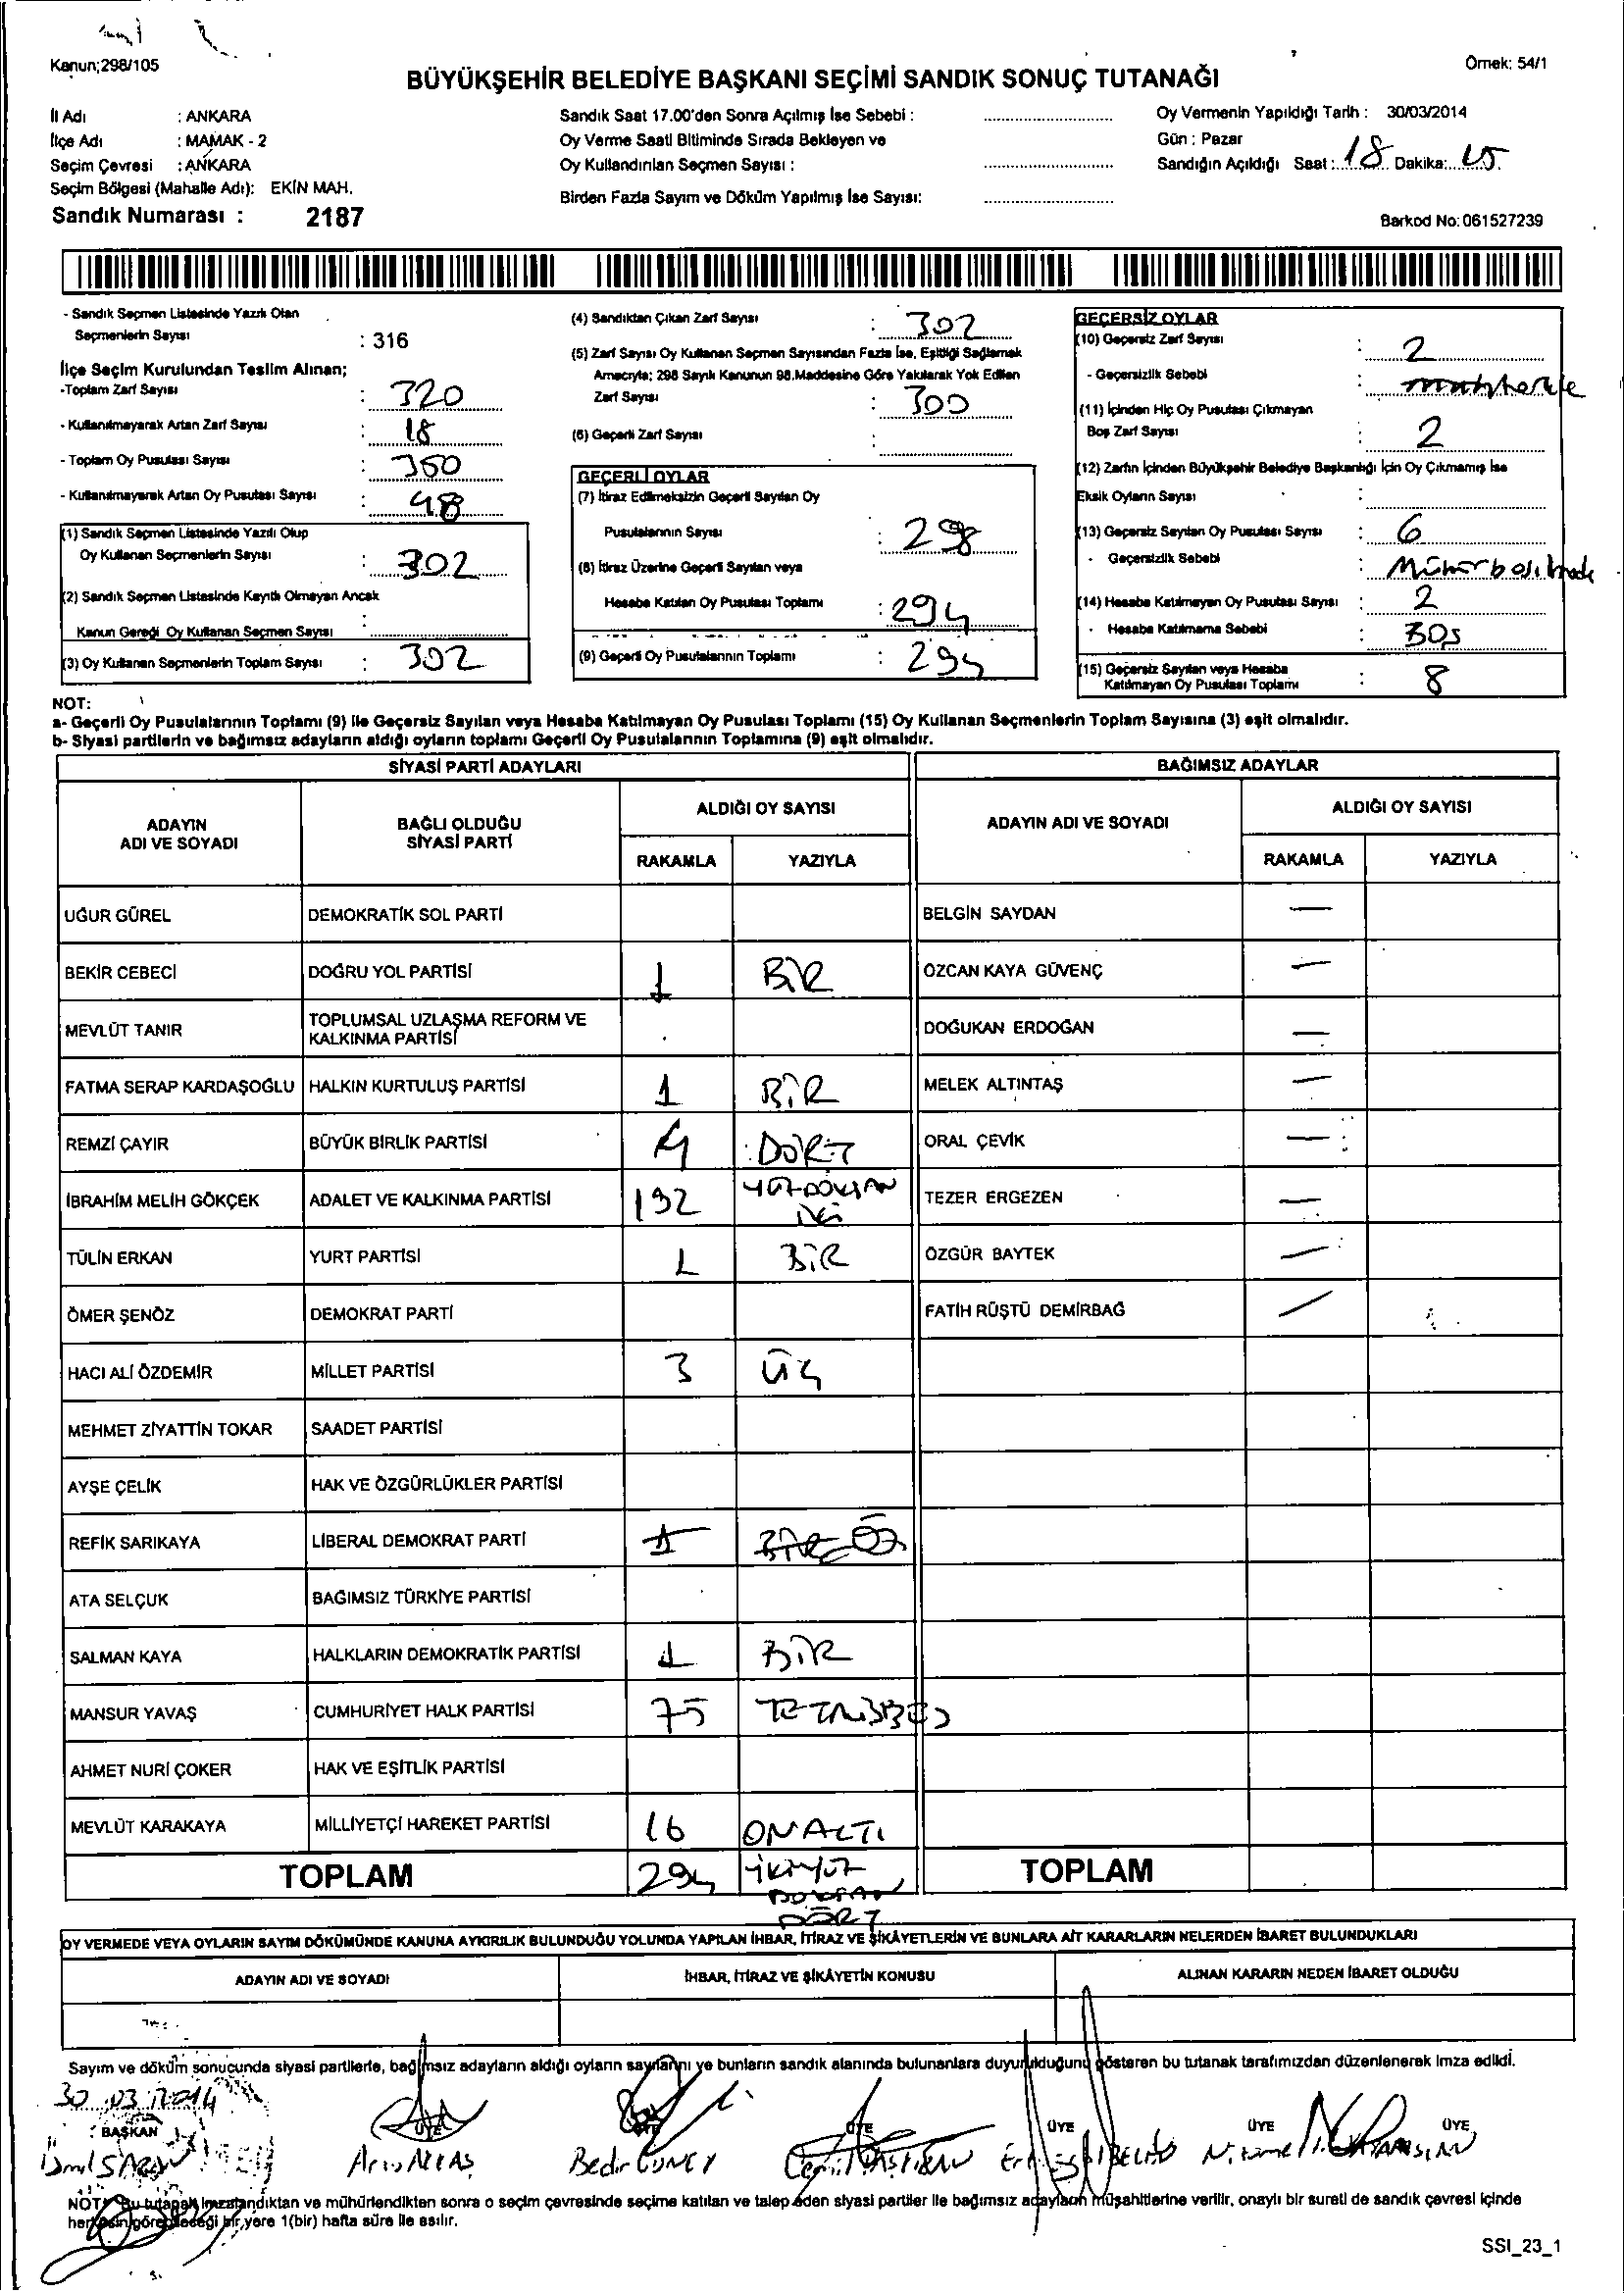 Kanun;298/105
Örnek: 54/1
BÜYÜKŞEHİR BELEDİYE BAŞKANI SEÇİMİ SANDIK SONUÇ TUTANAĞI
İl Adı : ANKARA
İlçe Adı : MAMAK - 2
Seçim Çevresi : ANKARA
Seçim Bölgesi (Mahalle Adı): EKİN MAH.
Sandık Numarası : 2187
Sandık Saat 17.00'den Sonra Açılmış İse Sebebi :
Oy Verme Saati Bitiminde Sırada Bekleyen ve
Oy Kullandırılan Seçmen Sayısı :
Birden Fazla Sayım ve Döküm Yapılmış İse Sayısı:
Oy Vermenin Yapıldığı Tarih : 30/03/2014
Gün : Pazar
Sandığın Açıldığı Saat : 18 Dakika: 15
Barkod No: 061527239
- Sandık Seçmen Listesinde Yazılı Olan
Seçmenlerin Sayısı : 316
İlçe Seçim Kurulundan Teslim Alınan;
-Toplam Zarf Sayısı : 320
- Kullanılmayarak Artan Zarf Sayısı : 18
- Toplam Oy Pusulası Sayısı : 350
- Kullanılmayarak Artan Oy Pusulası Sayısı : 48
(1) Sandık Seçmen Listesinde Yazılı Olup
Oy Kullanan Seçmenlerin Sayısı : 302
(2) Sandık Seçmen Listesinde Kayıtlı Olmayan Ancak
Kanun Gereği Oy Kullanan Seçmen Sayısı :
(3) Oy Kullanan Seçmenlerin Toplam Sayısı : 302
(4) Sandıktan Çıkan Zarf Sayısı : 302
(5) Zarf Sayısı Oy Kullanan Seçmen Sayısından Fazla İse, Eşitliği Sağlamak
Amacıyla; 298 Sayılı Kanunun 98.Maddesine Göre Yakılarak Yok Edilen
Zarf Sayısı : 300
(6) Geçerli Zarf Sayısı :
GEÇERLİ OYLAR
(7) İtiraz Edilmeksizin Geçerli Sayılan Oy
Pusulalarının Sayısı : 298
(8) İtiraz Üzerine Geçerli Sayılan veya
Hesaba Katılan Oy Pusulası Toplamı : 294
(9) Geçerli Oy Pusulalarının Toplamı : 294
GEÇERSİZ OYLAR
(10) Geçersiz Zarf Sayısı : 2
- Geçersizlik Sebebi :
(11) İçinden Hiç Oy Pusulası Çıkmayan
Boş Zarf Sayısı : 2
(12) Zarfın İçinden Büyükşehir Belediye Başkanlığı İçin Oy Çıkmamış İse
Eksik Oyların Sayısı :
(13) Geçersiz Sayılan Oy Pusulası Sayısı : 6
- Geçersizlik Sebebi :
(14) Hesaba Katılmayan Oy Pusulası Sayısı : 2
- Hesaba Katılmama Sebebi : BOŞ
(15) Geçersiz Sayılan veya Hesaba
Katılmayan Oy Pusulası Toplamı : 8
NOT:
a- Geçerli Oy Pusulalarının Toplamı (9) ile Geçersiz Sayılan veya Hesaba Katılmayan Oy Pusulası Toplamı (15) Oy Kullanan Seçmenlerin Toplam Sayısına (3) eşit olmalıdır.
b- Siyasi partilerin ve bağımsız adayların aldığı oyların toplamı Geçerli Oy Pusulalarının Toplamına (9) eşit olmalıdır.
SİYASİ PARTİ ADAYLARI BAĞIMSIZ ADAYLAR
ADAYIN ADI VE SOYADI BAĞLI OLDUĞU SİYASİ PARTİ ALDIĞI OY SAYISI ADAYIN ADI VE SOYADI ALDIĞI OY SAYISI
RAKAMLA YAZIYLA RAKAMLA YAZIYLA
UĞUR GÜREL DEMOKRATİK SOL PARTİ BELGİN SAYDAN —
BEKİR CEBECİ DOĞRU YOL PARTİSİ 1 BİR ÖZCAN KAYA GÜVENÇ —
MEVLÜT TANIR TOPLUMSAL UZLAŞMA REFORM VE KALKINMA PARTİSİ DOĞUKAN ERDOĞAN —
FATMA SERAP KARDAŞOĞLU HALKIN KURTULUŞ PARTİSİ 1 BİR MELEK ALTINTAŞ —
REMZİ ÇAYIR BÜYÜK BİRLİK PARTİSİ 4 DÖRT ORAL ÇEVİK —
İBRAHİM MELİH GÖKÇEK ADALET VE KALKINMA PARTİSİ 192 YÜZDOKSAN İKİ TEZER ERGEZEN —
TÜLİN ERKAN YURT PARTİSİ 1 BİR ÖZGÜR BAYTEK —
ÖMER ŞENÖZ DEMOKRAT PARTİ FATİH RÜŞTÜ DEMİRBAĞ —
HACI ALİ ÖZDEMİR MİLLET PARTİSİ 3 ÜÇ
MEHMET ZİYATTİN TOKAR SAADET PARTİSİ
AYŞE ÇELİK HAK VE ÖZGÜRLÜKLER PARTİSİ
REFİK SARIKAYA LİBERAL DEMOKRAT PARTİ 1 BİR
ATA SELÇUK BAĞIMSIZ TÜRKİYE PARTİSİ
SALMAN KAYA HALKLARIN DEMOKRATİK PARTİSİ 1 BİR
MANSUR YAVAŞ CUMHURİYET HALK PARTİSİ 75
AHMET NURİ ÇOKER HAK VE EŞİTLİK PARTİSİ
MEVLÜT KARAKAYA MİLLİYETÇİ HAREKET PARTİSİ 16 ONALTI
TOPLAM 294 İKİYÜZ DOKSAN DÖRT TOPLAM
OY VERMEDE VEYA OYLARIN SAYIM DÖKÜMÜNDE KANUNA AYKIRILIK BULUNDUĞU YOLUNDA YAPILAN İHBAR, İTİRAZ VE ŞİKÂYETLERİN VE BUNLARA AİT KARARLARIN NELERDEN İBARET BULUNDUKLARI
ADAYIN ADI VE SOYADI İHBAR, İTİRAZ VE ŞİKÂYETİN KONUSU ALINAN KARARIN NEDEN İBARET OLDUĞU
Sayım ve döküm sonucunda siyasi partilerle, bağımsız adayların aldığı oyların sayılarını ve bunların sandık alanında bulunanlara duyurulduğunu gösteren bu tutanak tarafımızdan düzenlenerek imza edildi.
30.03.2014
BAŞKAN ÜYE ÜYE ÜYE ÜYE ÜYE ÜYE
Bedir GÜNEY
NOT: Bu tutanak imzalandıktan ve mühürlendikten sonra o seçim çevresinde seçime katılan ve talep eden siyasi partiler ile bağımsız adayların müşahitlerine verilir, onaylı bir sureti de sandık çevresi içinde
herkesin görebileceği bir yere 1(bir) hafta süre ile asılır.
SSI_23_1